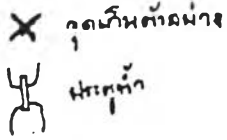 จุดเก็บตัวอย่าง
ประตูน้ำ